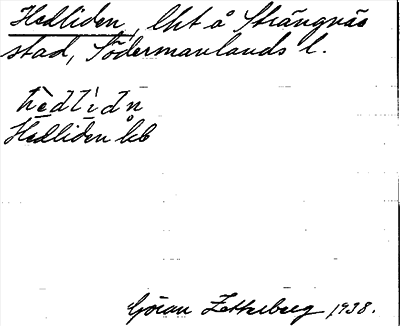 Hedliden, lht å Strängnäs
stad, Södermanlands l.
hèdlìdn
Hedliden kb
Göran Zetterberg 1938.